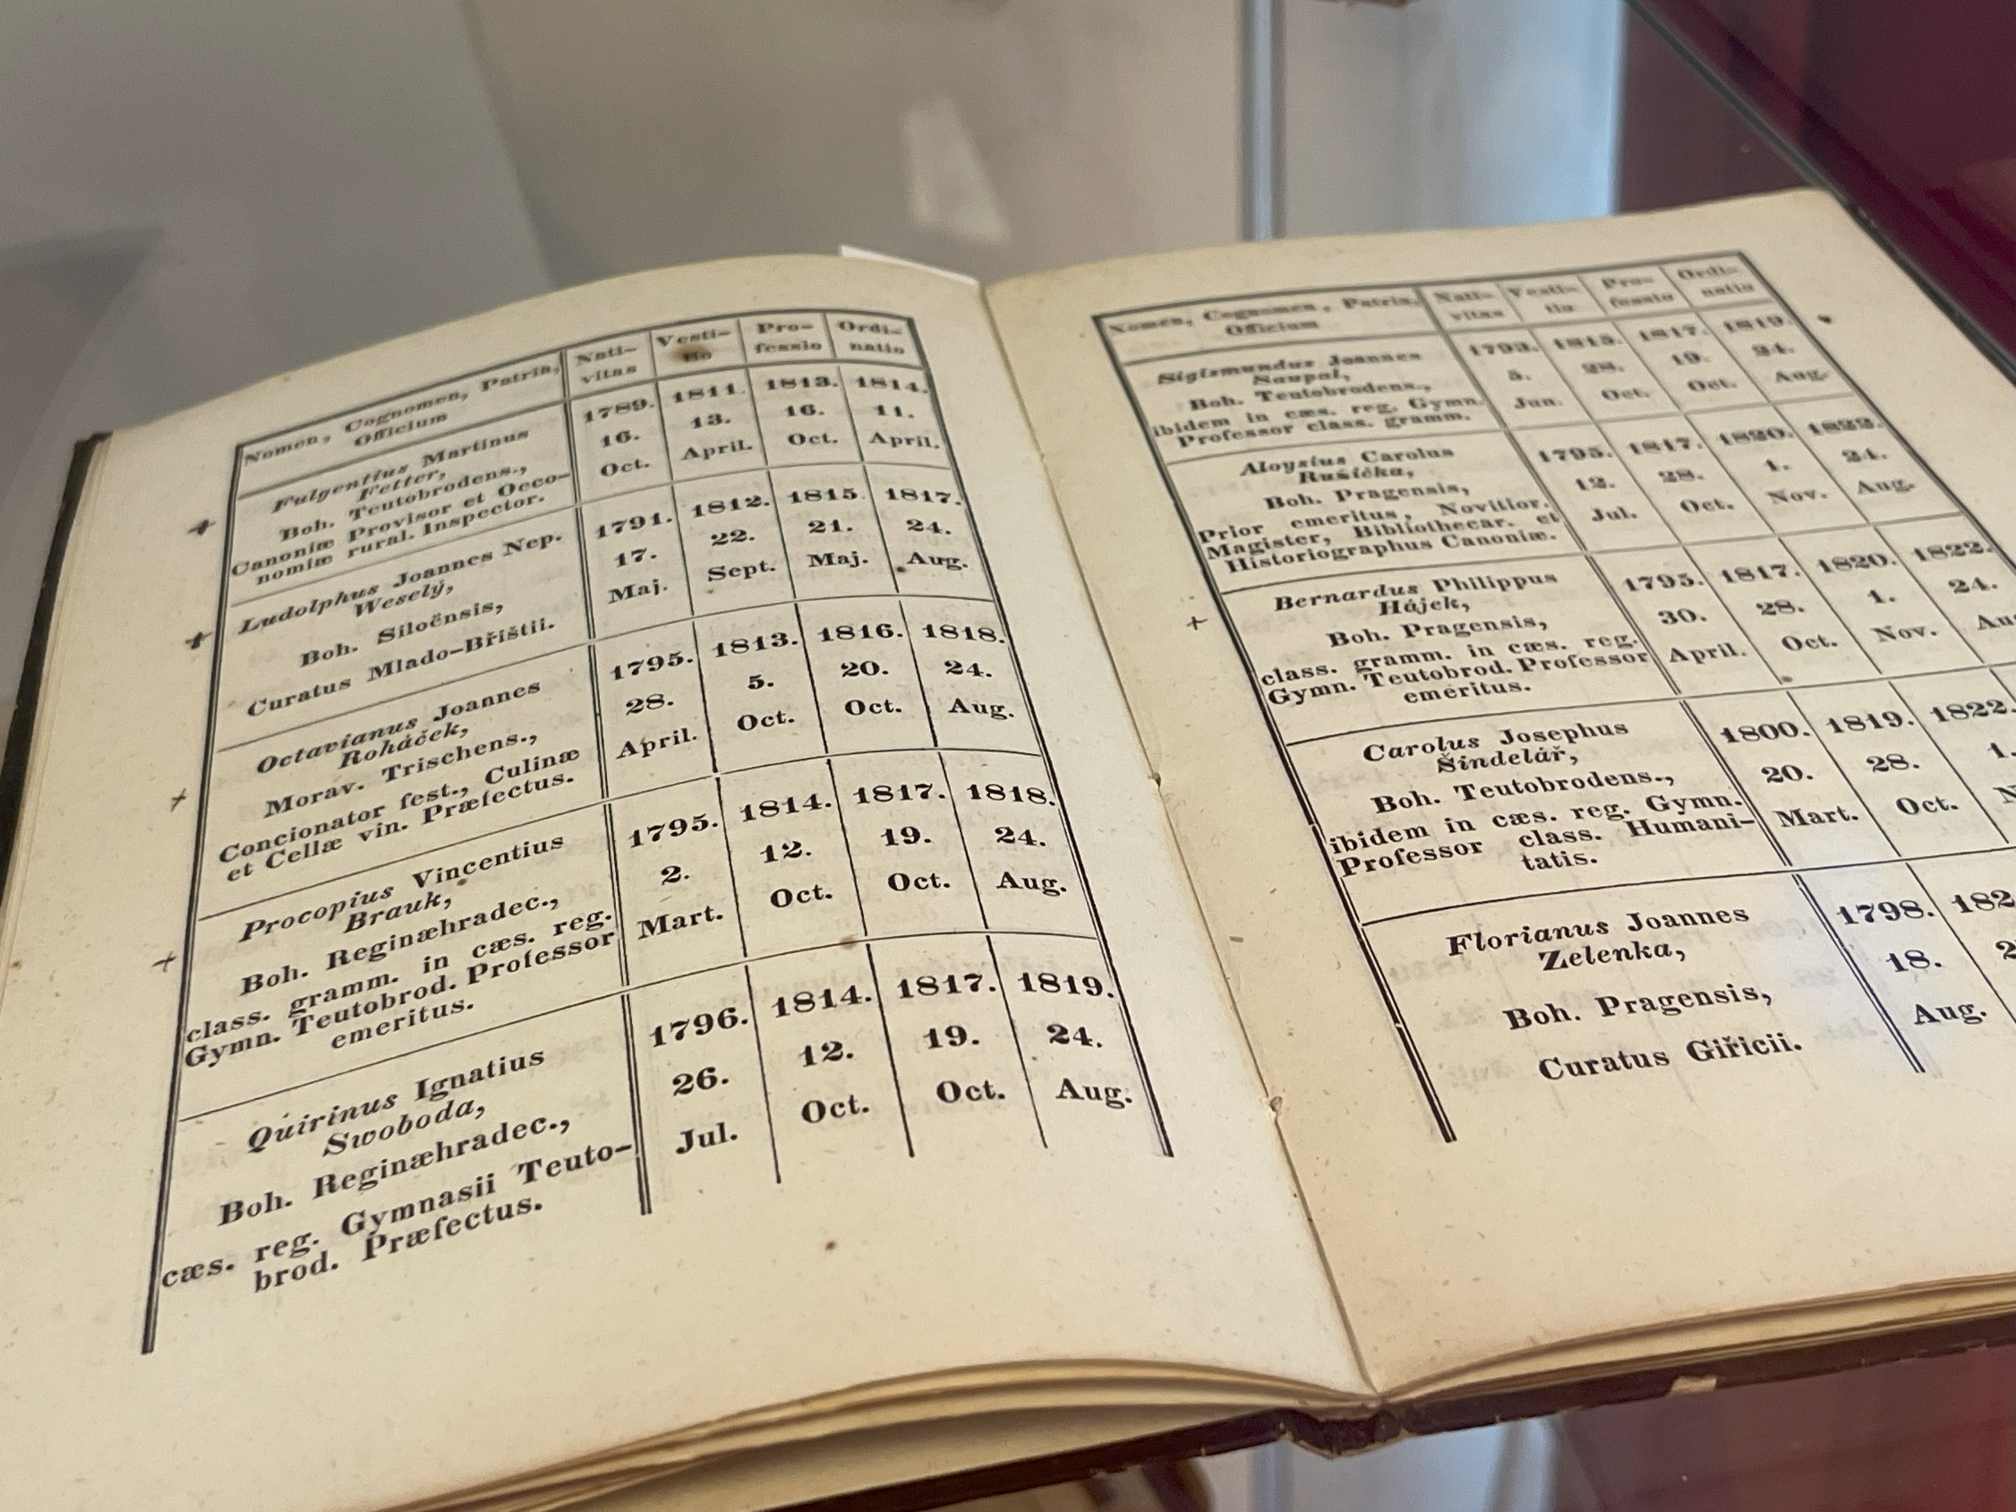 Nomen, Cognomen, Patria, Officium
Nati-vitas
Vesti-tio
Pro-fessio
Ordi-natio
Fulgentius Martinus
Fetter,
Boh. Teutobrodens.,
Canoniæ Provisor et Oeco-
nomiæ rural. Inspector.
1789. 16. Oct.
1811. 13. April.
1813. 16. Oct.
1814. 11. April.
Ludolphus Joannes Nep.
Weselý,
Boh. Siloënsis,
Curatus Mlado-Břištii.
1791. 17. Maj.
1812. 22. Sept.
1815. 21. Maj.
1817. 24. Aug.
Octavianus Joannes
Roháček,
Morav. Trischens.,
Concionator fest., Culinæ
et Cellæ vin. Præfectus.
1795. 28. April.
1813. 5. Oct.
1816. 20. Oct.
1818. 24. Aug.
Procopius Vincentius
Brauk,
Boh. Reginæhradec.,
class. gramm. in cæs. reg.
Gymn. Teutobrod. Professor
emeritus.
1795. 2. Mart.
1814. 12. Oct.
1817. 19. Oct.
1818. 24. Aug.
Quirinus Ignatius
Swoboda,
Boh. Reginæhradec.,
cæs. reg. Gymnasii Teuto-
brod. Præfectus.
1796. 26. Jul.
1814. 12. Oct.
1817. 19. Oct.
1819. 24. Aug.
Nomen, Cognomen, Patria, Officium
Nati-vitas
Vesti-tio
Pro-fessio
Ordi-natio
Sigismundus Joannes
Saupal,
Boh. Teutobrodens.,
ibidem in cæs. reg. Gymn.
Professor class. gramm.
1793. 5. Jun.
1815. 28. Oct.
1817. 19. Oct.
1819. 24. Aug.
Aloysius Carolus
Rušička,
Boh. Pragensis,
Prior emeritus, Novitior.
Magister, Bibliothecar. et
Historiographus Canoniæ.
1795. 12. Jul.
1817. 28. Oct.
1820. 1. Nov.
1822. 24. Aug.
Bernardus Philippus
Hájek,
Boh. Pragensis,
class. gramm. in cæs. reg.
Gymn. Teutobrod. Professor
emeritus.
1795. 30. April.
1817. 28. Oct.
1820. 1. Nov.
1822. 24. Au
Carolus Josephus
Šindelář,
Boh. Teutobrodens.,
ibidem in cæs. reg. Gymn.
Professor class. Humani-
tatis.
1800. 20. Mart.
1819. 28. Oct.
1822. 1. N
Florianus Joannes
Zelenka,
Boh. Pragensis,
Curatus Giřicii.
1798. 18. Aug.
182 2